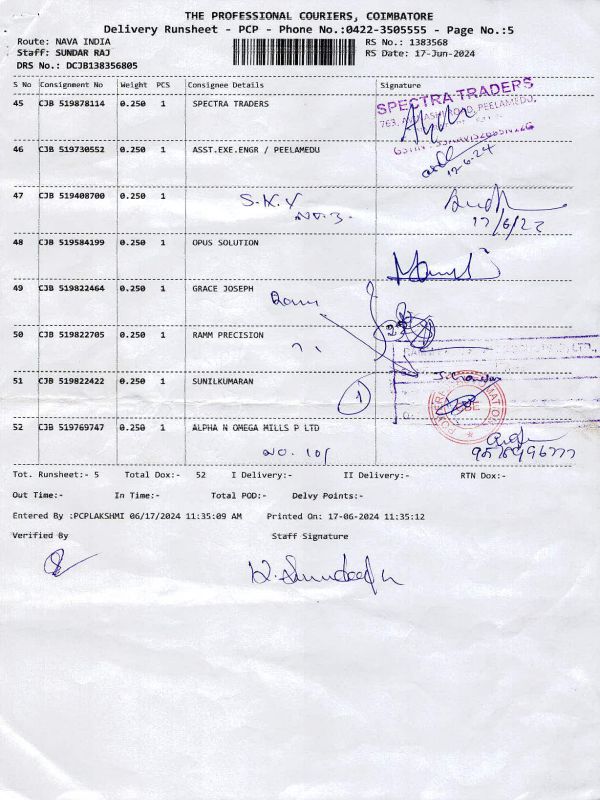 THE PROFESSIONAL COURIERS, COIMBATORE
Delivery Runsheet - PCP - Phone No.:0422-3505555 - Page No.:5
Route: NAVA INDIA RS No.: 1383568
Staff: SUNDAR RAJ RS Date: 17-Jun-2024
DRS No.: DCJB138356805
S No Consignment No Weight PCS Consignee Details Signature
45 CJB 519878114 0.250 1 SPECTRA TRADERS
SPECTRA TRADERS
763, PEELAMEDU,
46 CJB 519730552 0.250 1 ASST.EXE.ENGR / PEELAMEDU
17-6-24
47 CJB 519408700 0.250 1 S.K.Y
NO.3.
17/6/22
48 CJB 519584199 0.250 1 OPUS SOLUTION
49 CJB 519822464 0.250 1 GRACE JOSEPH
50 CJB 519822705 0.250 1 RAMM PRECISION
51 CJB 519822422 0.250 1 SUNILKUMARAN
1
52 CJB 519769747 0.250 1 ALPHA N OMEGA MILLS P LTD
NO. 101
Tot. Runsheet:- 5 Total Dox:- 52 I Delivery:- II Delivery:- RTN Dox:-
Out Time:- In Time:- Total POD:- Delvy Points:-
Entered By :PCPLAKSHMI 06/17/2024 11:35:09 AM Printed On: 17-06-2024 11:35:12
Verified By Staff Signature